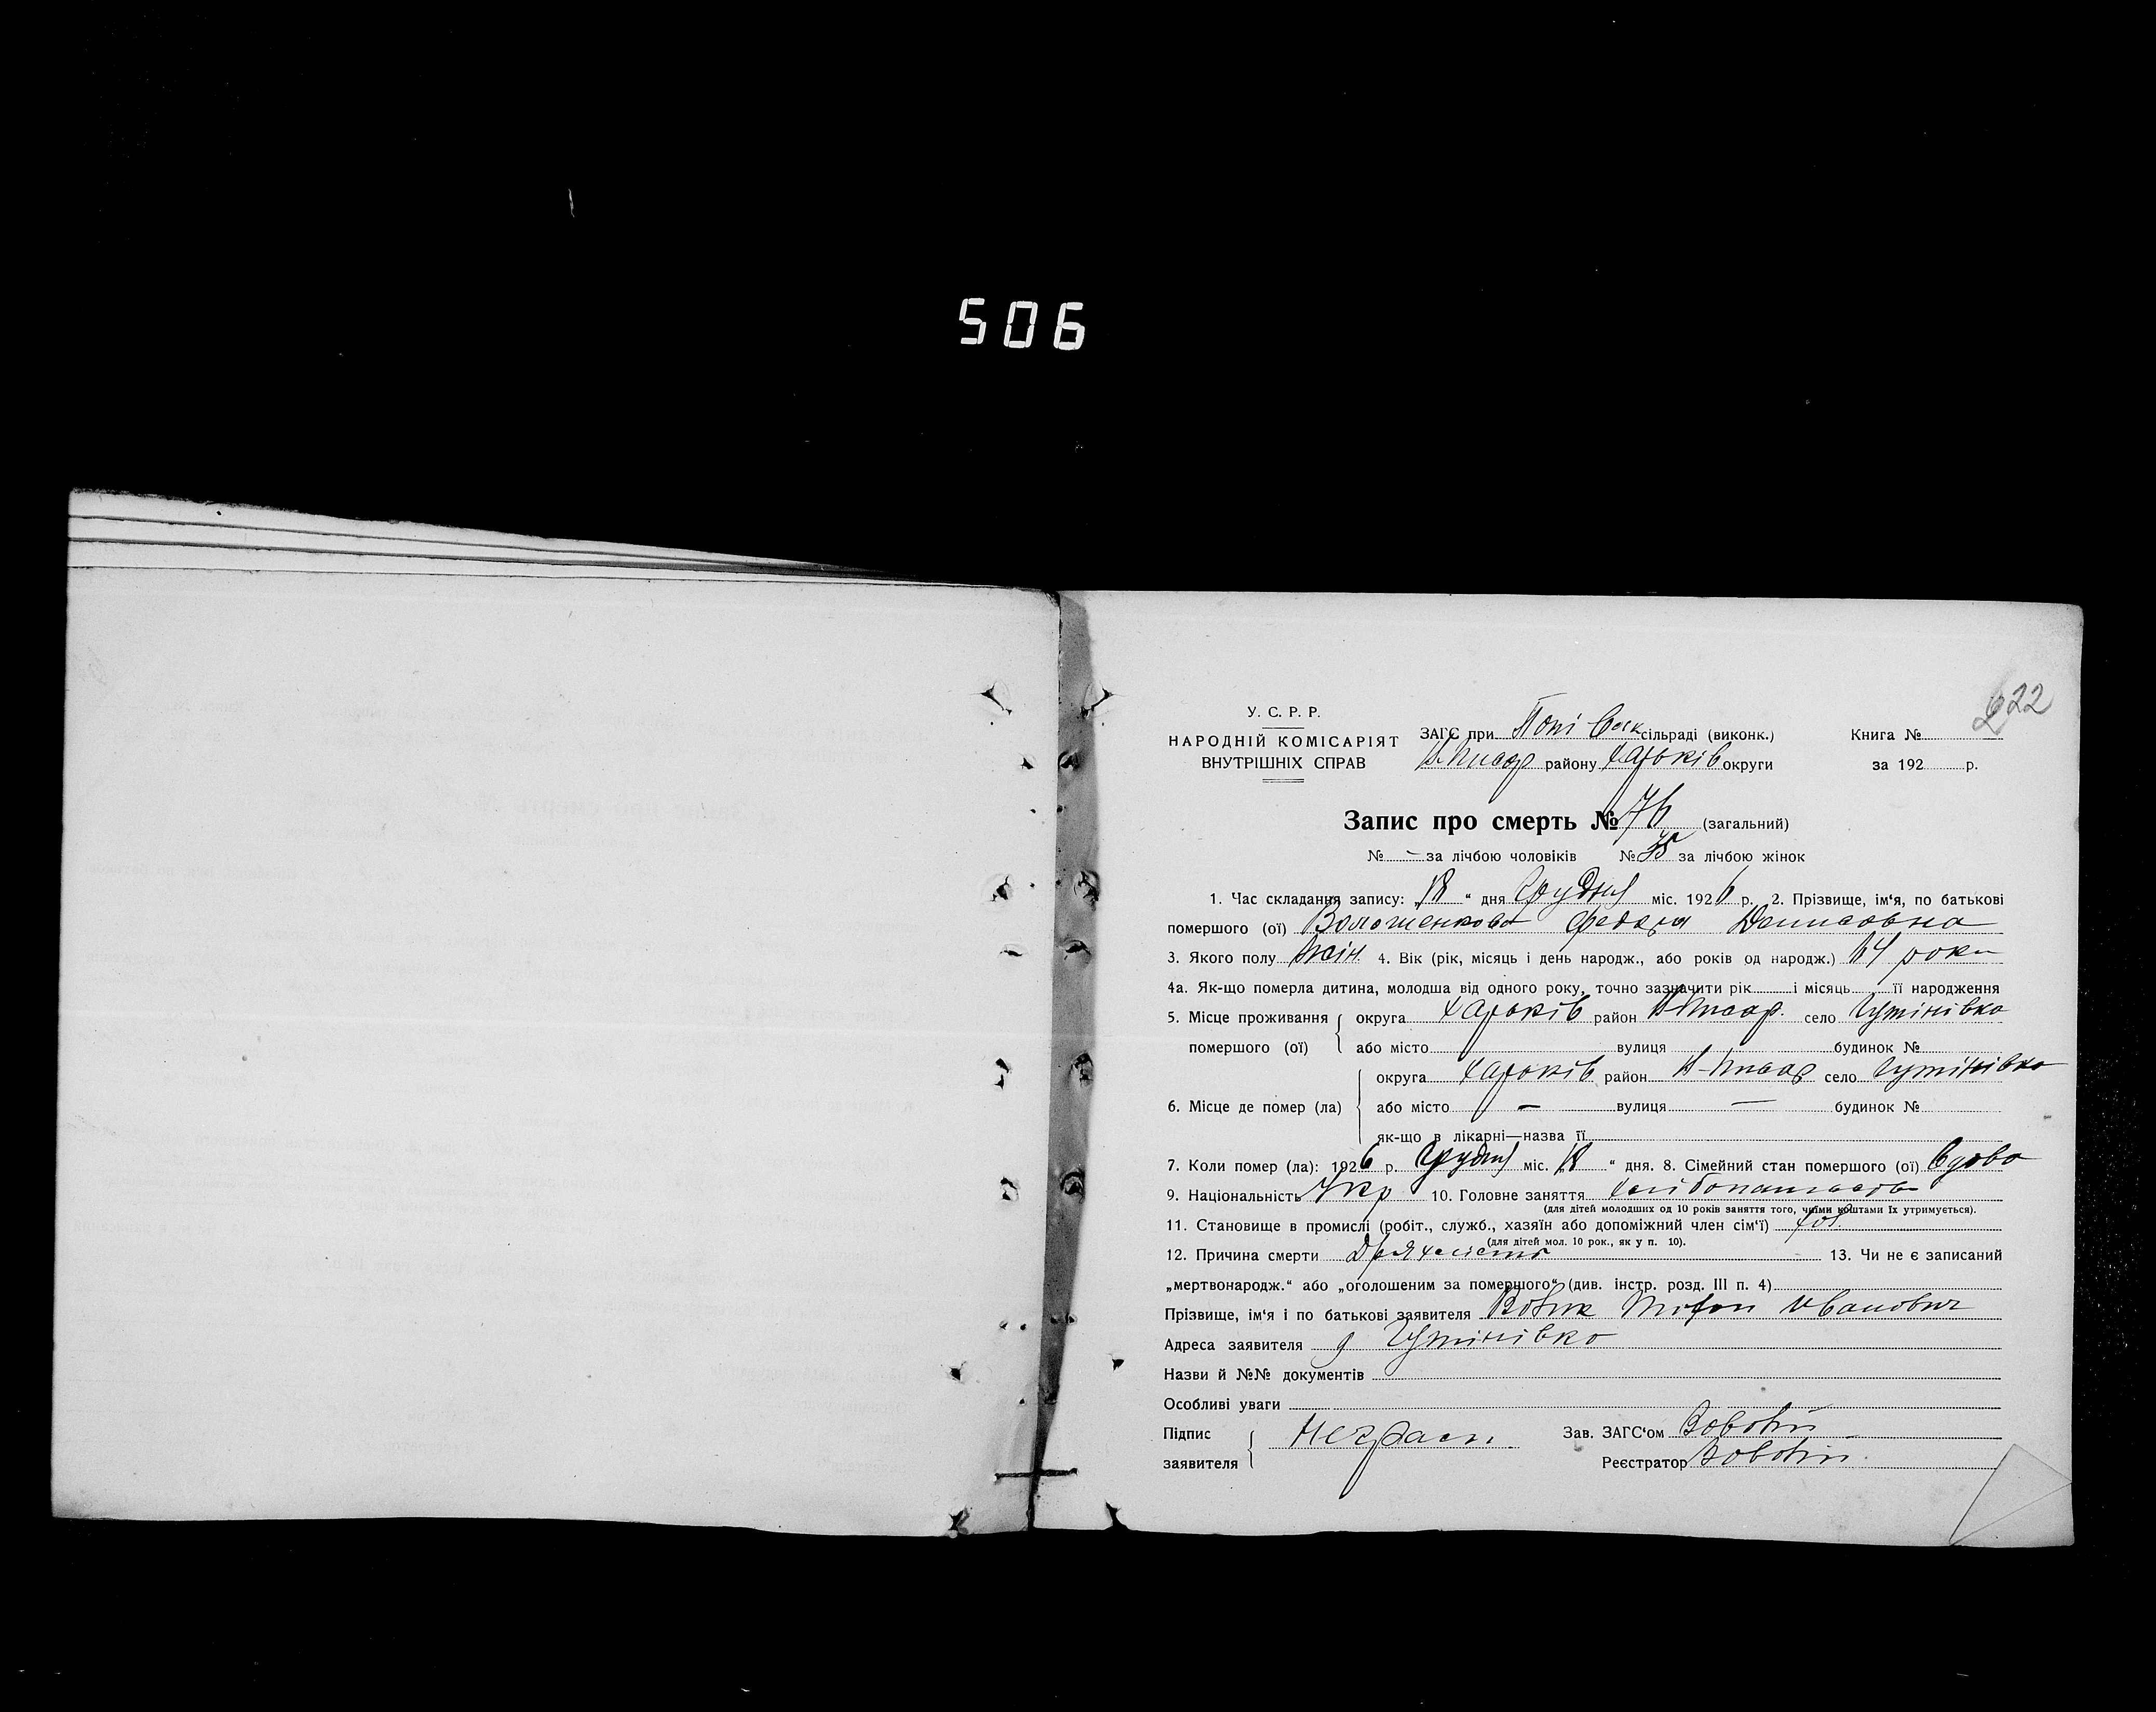 506
222
У. С. Р. Р.
НАРОДНІЙ КОМІСАРІЯТ
ВНУТРІШНІХ СПРАВ
ЗАГС при сільраді (виконк.)
району Харьків округи
Книга №
за 192 р.
Запис про смерть № 76 (загальний)
№ — за лічбою чоловіків № за лічбою жінок
1. Час складання запису: „18“ дня Грудня міс. 1926 р. 2. Прізвище, ім‘я, по батькові
помершого (ої) Волошенкова Федора Денисовна
3. Якого полу жін. 4. Вік (рік, місяць і день народж., або років од народж.) 64 роки
4а. Як-що померла дитина, молодша від одного року, точно зазначити рік і місяць її народження
5. Місце проживання округа Харьків район село Гутінівка
помершого (ої) або місто вулиця будинок №
округа Харьків район село Гутінівка
6. Місце де помер (ла) або місто — вулиця — будинок №
як-що в лікарні—назва її
7. Коли помер (ла): 1926 р. Грудня міс. 18 “ дня. 8. Сімейний стан помершого (ої) вдова
9. Національність Укр 10. Головне заняття
(для дітей молодших од 10 років заняття того, чиїми коштами їх утримується).
11. Становище в промислі (робіт., служб., хазяїн або допоміжний член сім‘ї)
(для дітей мол. 10 рок., як у п. 10).
12. Причина смерти Дряхлість 13. Чи не є записаний
„мертвонародж.“ або „оголошеним за помершого“ (див. інстр. розд. III п. 4)
Прізвище, ім‘я і по батькові заявителя Іванович
Адреса заявителя Гутінівка
Назви й №№ документів
Особливі уваги
Підпис
заявителя Неграм.
Зав. ЗАГС‘ом
Реєстратор